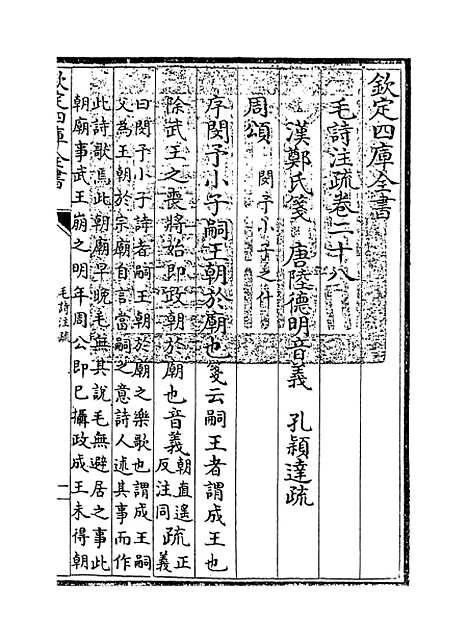 欽定四庫全書
毛詩注疏卷二十八
漢鄭氏箋　唐陸德明音義　孔穎達疏
周頌　閔予小子之什
序閔予小子嗣王朝於廟也箋云嗣王者謂成王也
除武王之喪將始即政朝於廟也音義朝直遙反注同疏正義
曰閔予小子詩者嗣王朝於廟之樂歌也謂成王嗣
父為王朝於宗廟自言當嗣之意詩人述其事而作
此詩歌焉此朝廟早晚毛無其說毛無避居之事此
朝廟事武王崩之明年周公即已攝政成王未得朝
欽定四庫全書
毛詩注疏
一